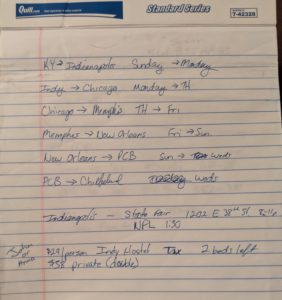 Quill.com
Standard Series
7-42328
KY → Indianapolis Sunday → Monday
Indy → Chicago Monday → TH
Chicago → Memphis TH → Fri
Memphis → New Orleans Fri → Sun
New Orleans → PCB Sun → Weds
PCB → Weds
Indianapolis - State Fair 1202 E 38th St
NPL 1:30
$29/person Indy Hostel Tax 2 beds left
$58 private (double)